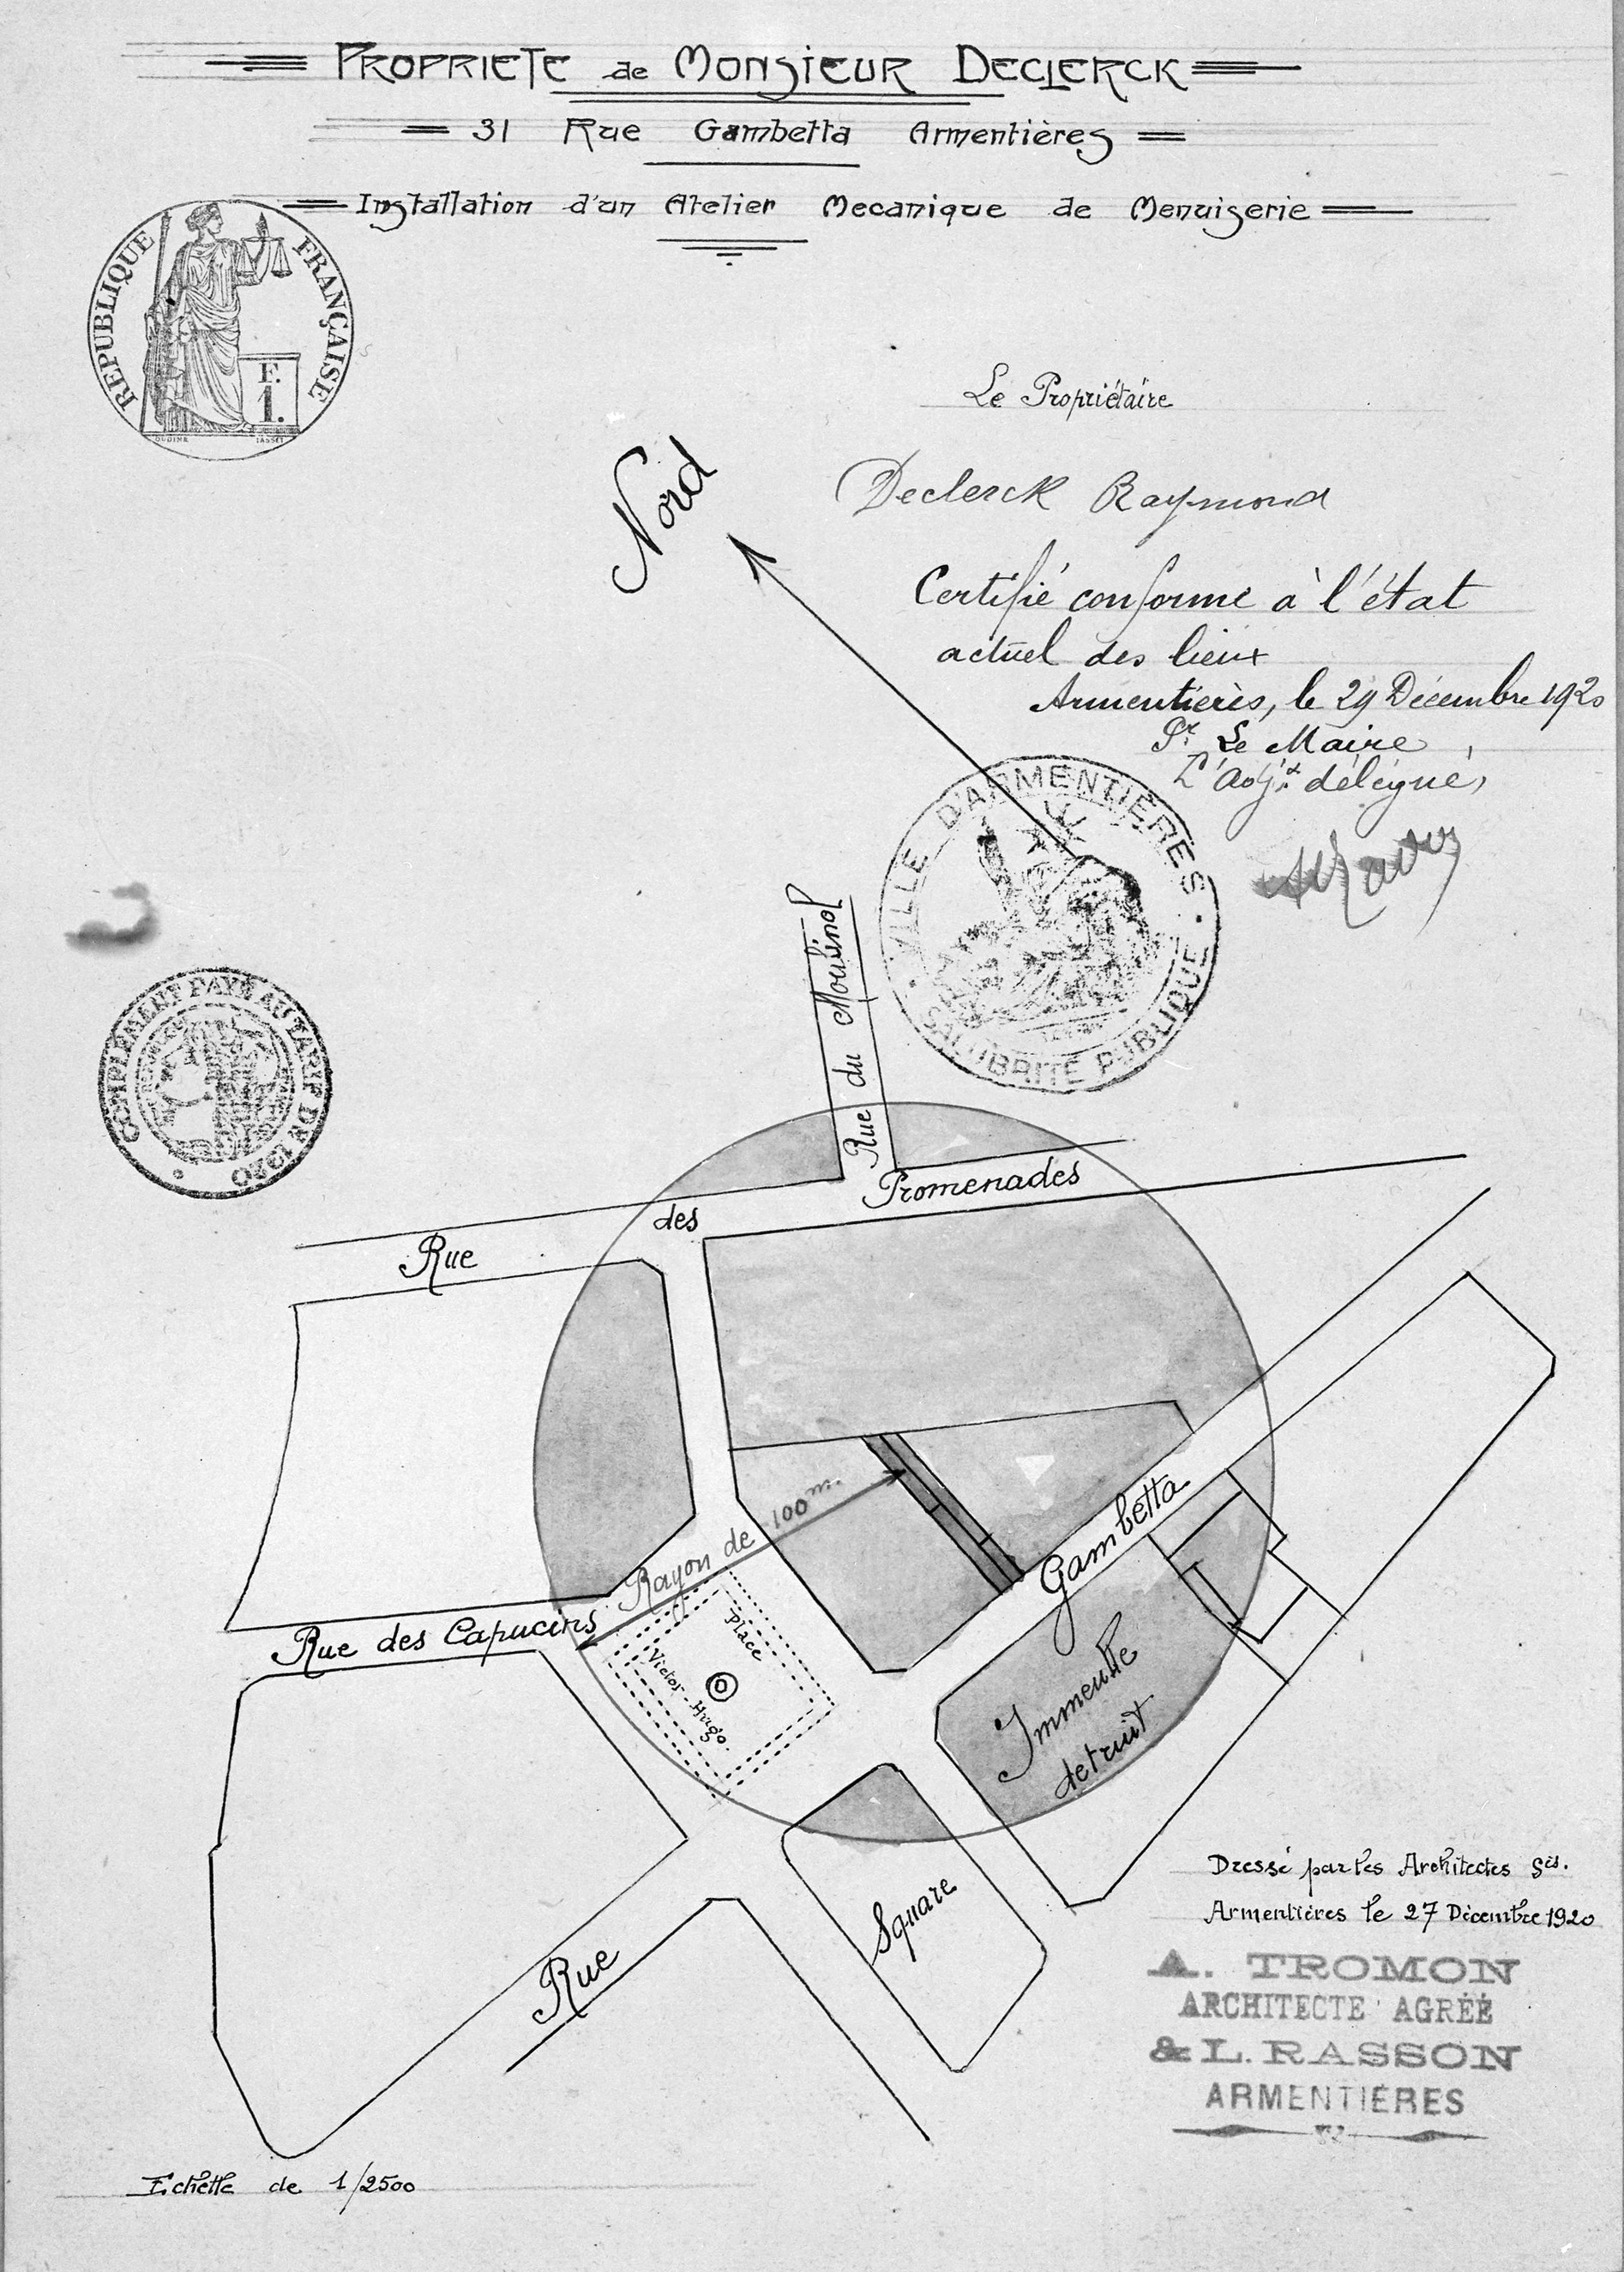 PROPRIETE de MONSIEUR DECLERCK
31 Rue Gambetta Armentières
Installation d'un Atelier Mecanique de Menuiserie
REPUBLIQUE FRANÇAISE
F.
1.
OUDINÉ TASSET
Le Propriétaire
Declerck Raymond
Nord
Certifié conforme à l'état
actuel des lieux
Armentières, le 29 Décembre 1920
Pr. Le Maire,
L'adjt. délégué,
VILLE D'ARMENTIÈRES
SALUBRITÉ PUBLIQUE
COMPLÉMENT PAYÉ AU TARIF DE 1920
Rue du Moulinol
Rue des Promenades
Rayon de 100 m.
Gambetta
Rue des Capucins
Place
Victor-Hugo.
Immeuble
detruit
Square
Rue
Dressé par les Architectes Ssés.
Armentières le 27 Décembre 1920
A. TROMON
ARCHITECTE AGRÉÉ
& L. RASSON
ARMENTIÈRES
Echelle de 1/2500